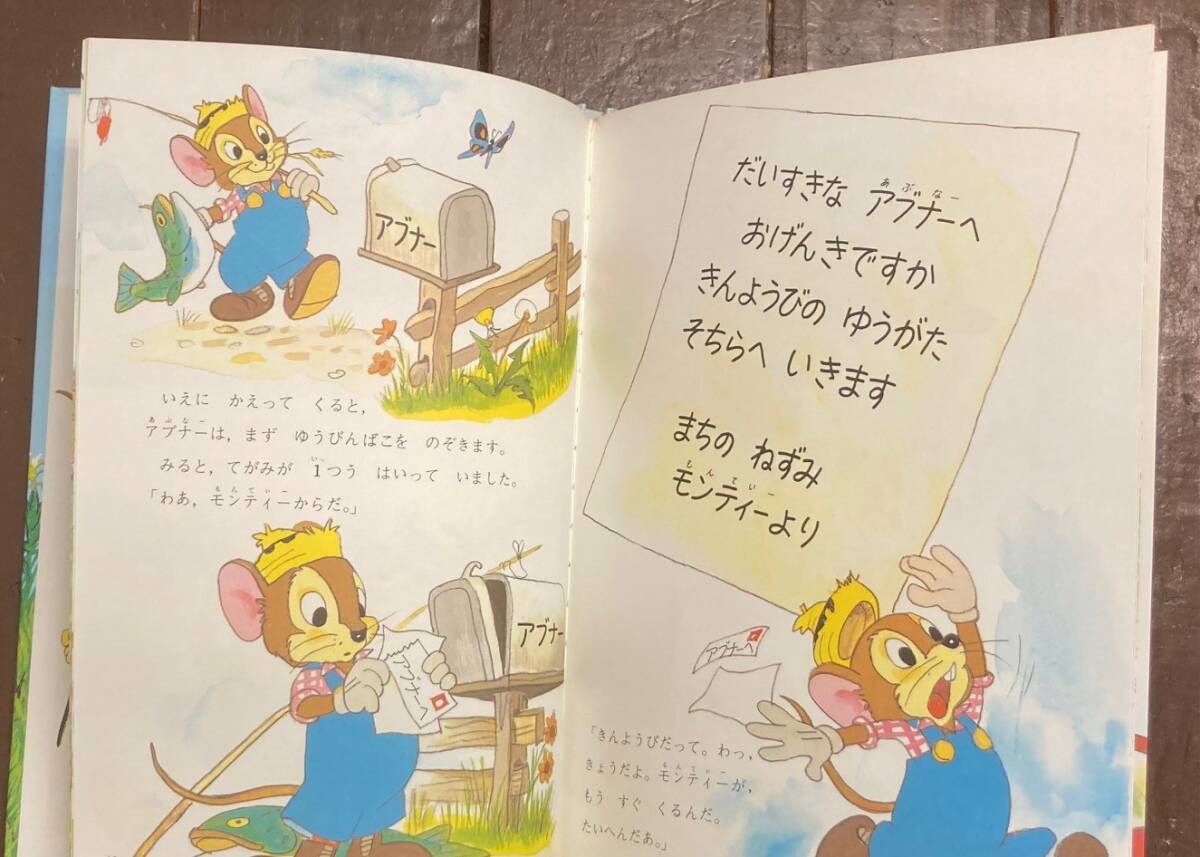 アブナー
いえに かえって くると,
あぶなー
アブナーは, まず ゆうびんばこを のぞきます。
いっ
みると, てがみが 1つう はいって いました。
もんてぃー
「わあ, モンティーからだ。」
アブナー
アブナーへ
だいすきな アブナーへ
あぶなー
おげんきですか
きんようびの ゆうがた
そちらへ いきます
まちの ねずみ
もんてぃー
モンティーより
アブナーへ
「きんようびだって。わっ,
もんてぃー
きょうだよ。モンティーが,
もう すぐ くるんだ。
たいへんだあ。」